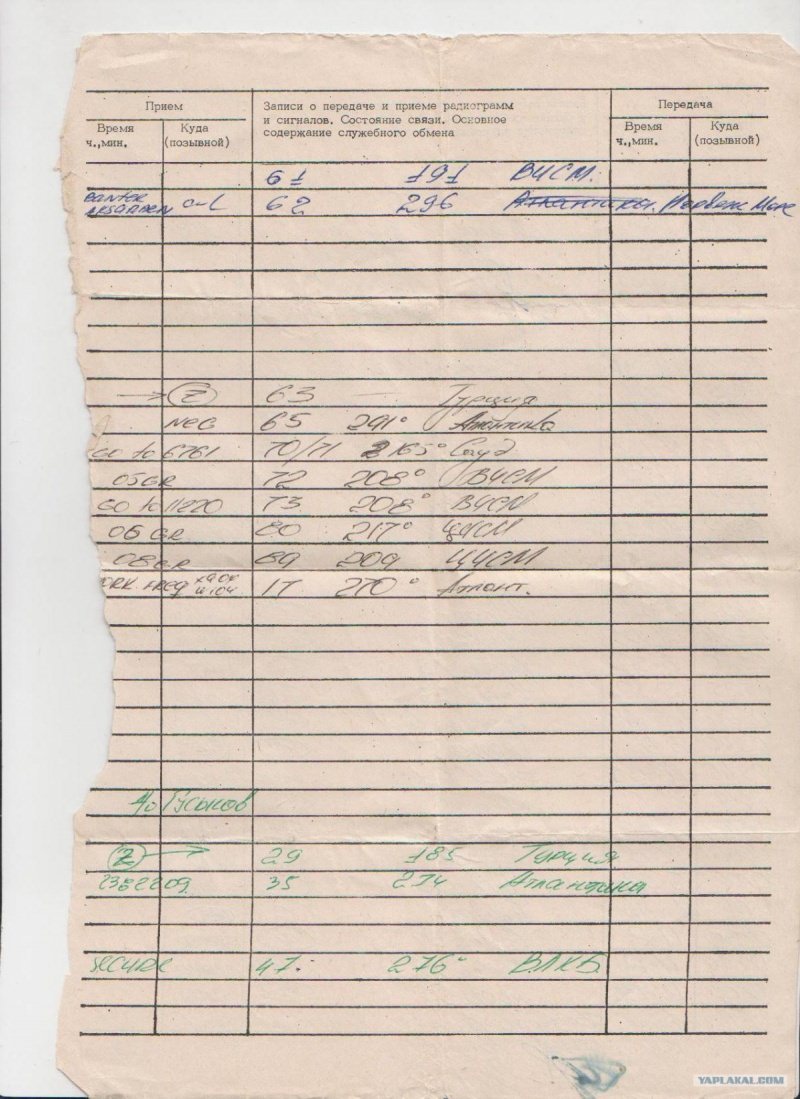 Прием
Записи о передаче и приеме радиограмм
и сигналов. Состояние связи. Основное
содержание служебного обмена
Передача
Время
ч.,мин.
Куда
(позывной)
Время
ч.,мин.
Куда
(позывной)
61 191 ВЧСМ.
62 296 Атлантика. Норвеж Море
→ Z 63 — Турция
NEG 65 291° Атлантика
GO to 6761 70/71 265° Сауд
05GR 72 208° ВЧСМ
GO to 11220 73 208° ВЧСМ
06 GR 80 217° ЦЧСМ
08GR 89 209 ЦЧСМ
FREQ 17 270° Атлант.
Гуськов
Z → 29 185 Турция
35 274 Атлантика
SECURE 47. 276° ВЛКБ
YAPLAKAL.COM